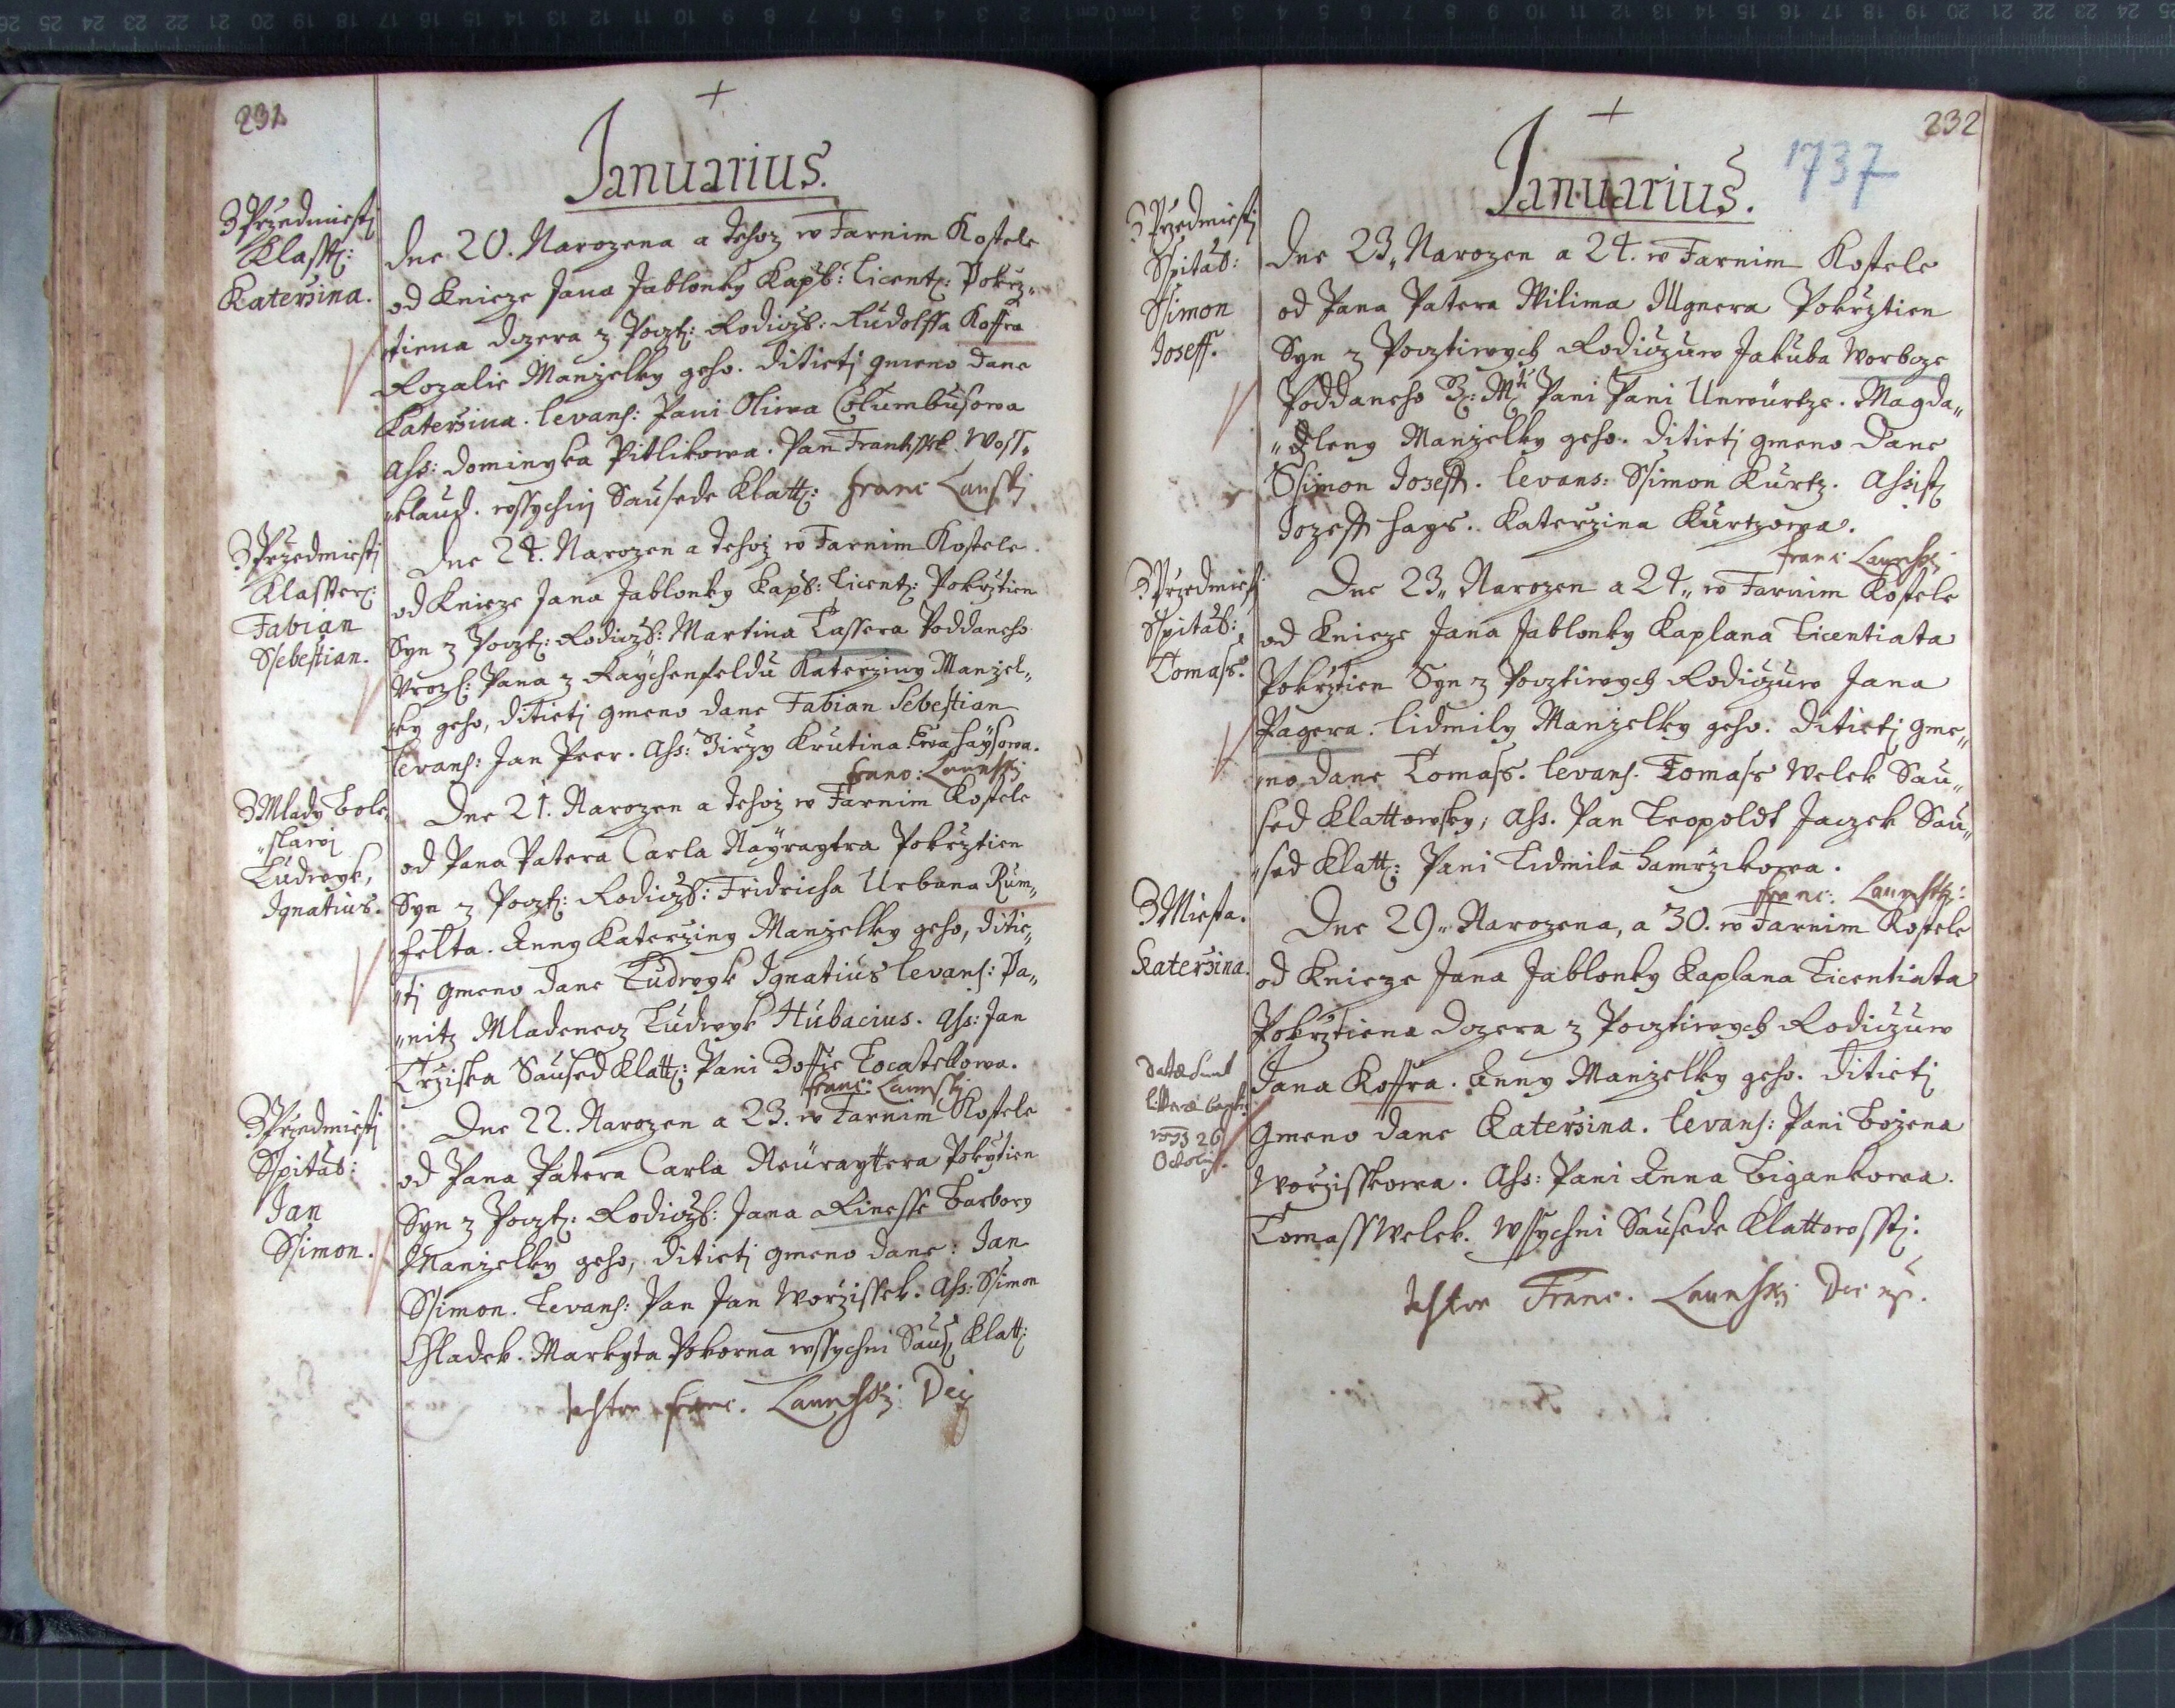 231
+
Januarius.
Z Przedmiesti
Klasst:
Katerzina.
Dne 20. Narozena a tehoz w Farnim Kostele
od Knieze Jana Jablonky Kapl: Licent: Pokrz„
tiena dczera z Poczt: Rodicz: Rudolffa Koffra
Rozalie Manzelky geho. Ditieti gmeno dane
Katerzina. levans: Pani Oliwa Columbusowa
Ass: Dominyka Pitlikowa. Pan Frantissek Woss„
wssychni Sausede Klatt: Franc
Z Przedmiesti
Klasster:
Fabian
Ssebestian.
Dne 21. Narozen a tehoz w Farnim Kostele
od Knieze Jana Jablonky Kapl: Licent: Pokrztien
Syn z Poczt: Rodicz: Martina Tassera Poddaneho
Uroz: Pana z Raychenfeldu Katerziny Manzel„
ky geho, Ditieti gmeno dane Fabian Sebestian
levans: Jan Peer. Ass: Girzy Krutina Ewa Haysowa.
Z Mlady Bole„
„slawi
Ludwyk,
Ignatius.
Dne 21. Narozen a tehoz w Farnim Kostele
od Pana Patera Carla Nayraytra Pokrztien
Syn z Poczt: Rodicz: Fridricha Urbana Rum„
felta. Anny Katerziny Manzelky geho, ditie„
„ti gmeno dane Ludwyk Ignatius levans: Pa„
„nitz Mladenecz Ludwyk Hubacius. Ass: Jan
Trziska Saused Klatt: Pani Zoffie Locatellowa.
Z Przedmiesti
Sspital:
Jan
Ssimon.
Dne 22. Narozen a 23. w Farnim Kostele
od Pana Patera Carla Neuraytera Pokrztien
Syn z Poczt: Rodicz: Jana Rinesse Barbory
Manzelky geho, ditieti gmeno dane: Jan
Ssimon. Levans: Pan Jan Worzissek. Ass: Ssimon
Chladek. Markyta Pokorna wssychni Saus: Klatt:
Franc.
232
+
Januarius.
1737
Z Przedmiesti
Sspital:
Ssimon
Joseff.
Dne 23„ Narozen a 24. w Farnim Kostele
od Pana Patera Wilima Ugnera Pokrztien
Syn z Pocztiwych Rodiczuw Jakuba Worbcze
Poddaneho Pani Pani Unwürtze. Magda„
„leny Manzelky geho. Ditieti gmeno Dane
Ssimon Joseff. levans: Ssimon Kurtz. Assist:
Jozeff Hays. Katerzina Kurtzowa.
Z Przedmiesti
Sspital:
Tomass.
Dne 23„ Narozen a 24„ w Farnim Kostele
od Knieze Jana Jablonky Kaplana Licentiata
Pokrztien Syn z Pocztiwych Rodiczuw Jana
Pagera. Lidmily Manzelky geho. Ditieti gme„
„no dane Tomass. levans. Tomass Welek Sau„
sed Klattowsky; Ass. Pan Leopoldt Jaczek Sau„
„sed Klatt: Pani Lidmila Hamrzikowa.
Z Miesta.
Katerzina.
Dne 29„ Narozena, a 30. w Farnim Kostele
od Knieze Jana Jablonky Kaplana Licentiata
Pokrztiena dczera z Pocztiwych Rodiczuw
Jana Koffra. Anny Manzelky geho. Ditieti
gmeno dane Katerzina. levans: Pani Bozena
Worzisskowa. Ass: Pani Anna Bigankowa.
Tomass Welek. Wssychni Sausede Klattowsst:
Datæ sunt
litteræ
26
Octobris
Franc.